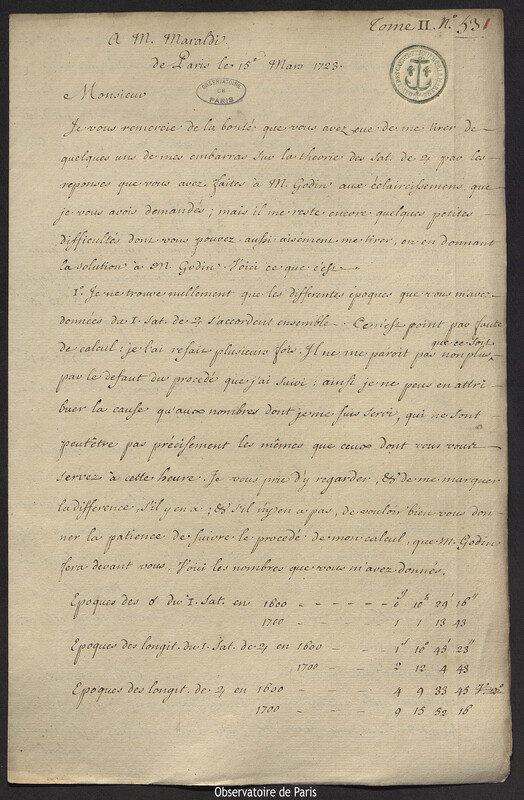 Tome II. N.° 53 1
A M. Maraldi.
de Paris le 15.e Mars 1723.
OBSERVATOIRE
DE
PARIS
Monsieur
Je vous remercie de la bonté que vous avez eue de me tirer de
quelques uns de mes embarras sur la theorie des Sat. de ♃ par les
reponses que vous avez faites à M. Godin aux éclaircissemens, que
je vous avois demandés; mais il me reste encore quelques petites
difficultés dont vous pouvez aussi aisément me tirer, en en donnant
la solution à M. Godin. Voici ce que c'est.
1.° Je ne trouve nullement que les differentes époques que vous m'avez
données du I. Sat. de ♃ s'accordent ensemble. Ce n'est point par faute
de calcul: je l'ai refait plusieurs fois. Il ne me paroit pas que ce soit non plus
par le defaut du procédé que j'ai suivi: ainsi je ne peus en attri-
buer la cause qu'aux nombres dont je me suis servi, qui ne sont
peutetre pas précisement les mêmes que ceux dont vous vous
servez à cette heure. Je vous prie d'y regarder, & de me marquer
la difference, s'il y en a; & s'il n'y en a pas, de vouloir bien vous don-
ner la patience de suivre le procedé de mon calcul, que M. Godin
fera devant vous. Voici les nombres que vous m'avez donnés.
Epoques des ☌ du I. Sat. en 1600 - - - - - - 0j 10h 29' 16''
1700 - - - - - - 1 1 13 43
Epoques des longit. du I. Sat. de ♃ en 1600 - - 1s 10° 45' 23''
1700 - - 2 12 4 43
Epoques des longit. de ♃ en 1600 - - - 4 9 33 45
1700 - - - 9 15 52 16
Observatoire de Paris